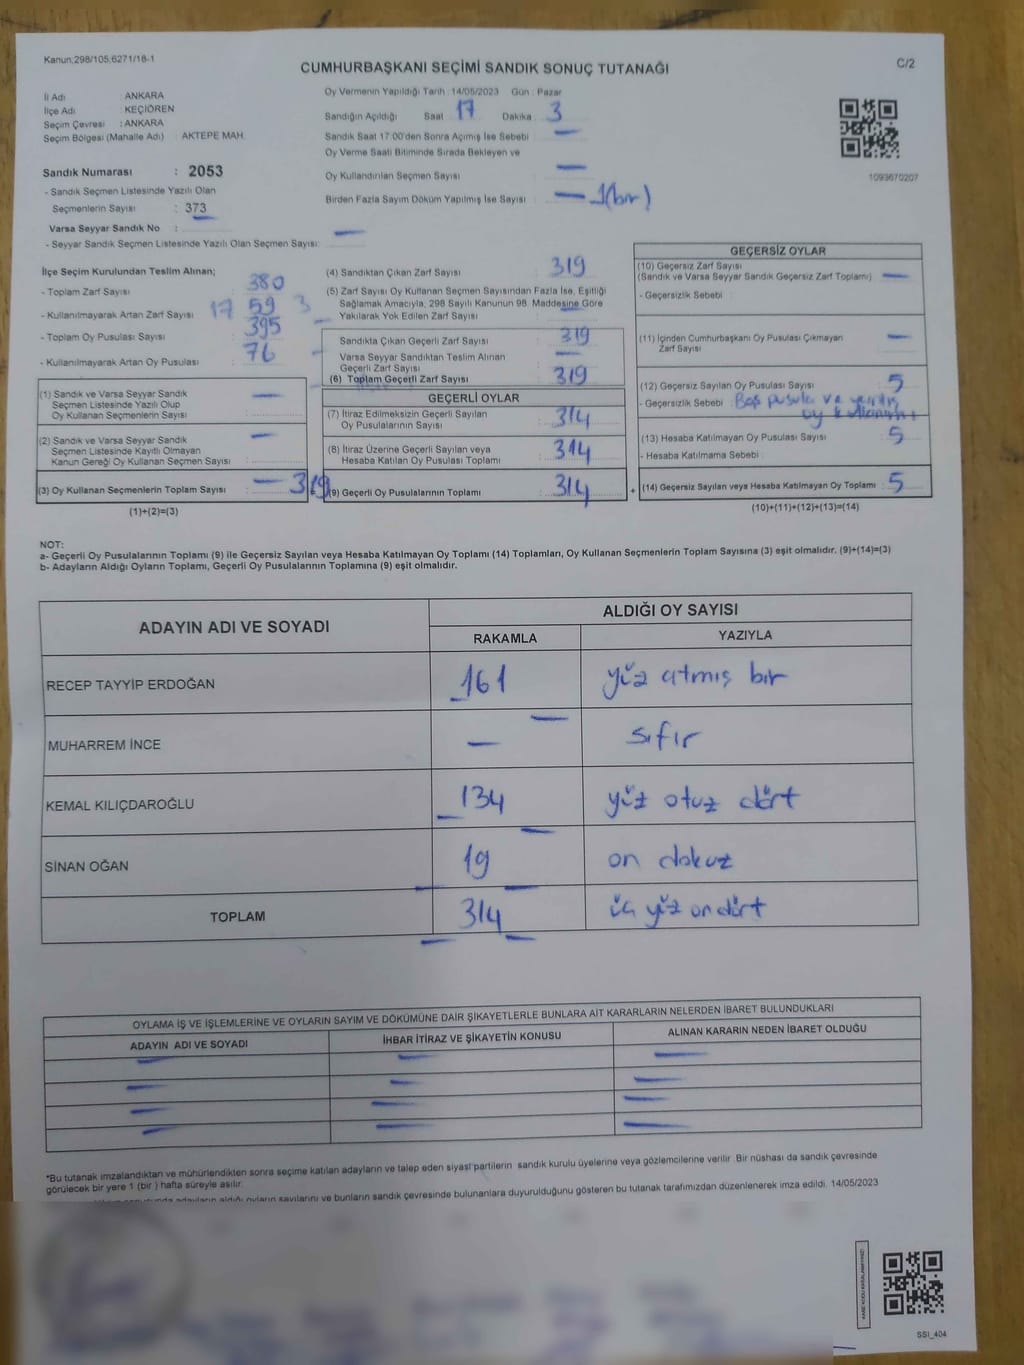 Kanun;298/105,6271/18-1
C/2
CUMHURBAŞKANI SEÇİMİ SANDIK SONUÇ TUTANAĞI
İl Adı : ANKARA
İlçe Adı : KEÇİÖREN
Seçim Çevresi : ANKARA
Seçim Bölgesi (Mahalle Adı) : AKTEPE MAH.
Sandık Numarası : 2053
- Sandık Seçmen Listesinde Yazılı Olan
Seçmenlerin Sayısı : 373
Varsa Seyyar Sandık No :
- Seyyar Sandık Seçmen Listesinde Yazılı Olan Seçmen Sayısı: —
Oy Vermenin Yapıldığı Tarih :14/05/2023 Gün : Pazar
Sandığın Açıldığı Saat 17 Dakika 3
Sandık Saat 17:00'den Sonra Açımış İse Sebebi —
Oy Verme Saati Bitiminde Sırada Bekleyen ve
Oy Kullandırılan Seçmen Sayısı —
Birden Fazla Sayım Döküm Yapılmış İse Sayısı — 1(bir)
1093670207
İlçe Seçim Kurulundan Teslim Alınan;
- Toplam Zarf Sayısı : 380
- Kullanılmayarak Artan Zarf Sayısı : 17 59 3
- Toplam Oy Pusulası Sayısı : 395
- Kullanılmayarak Artan Oy Pusulası : 76
(1) Sandık ve Varsa Seyyar Sandık
Seçmen Listesinde Yazılı Olup
Oy Kullanan Seçmenlerin Sayısı : —
(2) Sandık ve Varsa Seyyar Sandık
Seçmen Listesinde Kayıtlı Olmayan
Kanun Gereği Oy Kullanan Seçmen Sayısı : —
(3) Oy Kullanan Seçmenlerin Toplam Sayısı : — 319
(1)+(2)=(3)
(4) Sandıktan Çıkan Zarf Sayısı : 319
(5) Zarf Sayısı Oy Kullanan Seçmen Sayısından Fazla İse, Eşitliği
Sağlamak Amacıyla, 298 Sayılı Kanunun 98. Maddesine Göre
Yakılarak Yok Edilen Zarf Sayısı : —
Sandıkta Çıkan Geçerli Zarf Sayısı : 319
Varsa Seyyar Sandıktan Teslim Alınan
Geçerli Zarf Sayısı : —
(6) Toplam Geçerli Zarf Sayısı : 319
GEÇERLİ OYLAR
(7) İtiraz Edilmeksizin Geçerli Sayılan
Oy Pusulalarının Sayısı : 314
(8) İtiraz Üzerine Geçerli Sayılan veya
Hesaba Katılan Oy Pusulası Toplamı : 314
(9) Geçerli Oy Pusulalarının Toplamı : 314
GEÇERSİZ OYLAR
(10) Geçersiz Zarf Sayısı
(Sandık ve Varsa Seyyar Sandık Geçersiz Zarf Toplamı) : —
- Geçersizlik Sebebi :
(11) İçinden Cumhurbaşkanı Oy Pusulası Çıkmayan
Zarf Sayısı : —
(12) Geçersiz Sayılan Oy Pusulası Sayısı : 5
- Geçersizlik Sebebi : Boş pusula ve
oy
(13) Hesaba Katılmayan Oy Pusulası Sayısı : 5
- Hesaba Katılmama Sebebi :
+ (14) Geçersiz Sayılan veya Hesaba Katılmayan Oy Toplamı : 5
(10)+(11)+(12)+(13)=(14)
NOT:
a- Geçerli Oy Pusulalarının Toplamı (9) ile Geçersiz Sayılan veya Hesaba Katılmayan Oy Toplamı (14) Toplamları, Oy Kullanan Seçmenlerin Toplam Sayısına (3) eşit olmalıdır. (9)+(14)=(3)
b- Adayların Aldığı Oyların Toplamı, Geçerli Oy Pusulalarının Toplamına (9) eşit olmalıdır.
ADAYIN ADI VE SOYADI
ALDIĞI OY SAYISI
RAKAMLA YAZIYLA
RECEP TAYYİP ERDOĞAN 161 yüz atmış bir
MUHARREM İNCE — sıfır
KEMAL KILIÇDAROĞLU 134 yüz otuz dört
SİNAN OĞAN 19 on dokuz
TOPLAM 314 üç yüz on dört
OYLAMA İŞ VE İŞLEMLERİNE VE OYLARIN SAYIM VE DÖKÜMÜNE DAİR ŞİKAYETLERLE BUNLARA AİT KARARLARIN NELERDEN İBARET BULUNDUKLARI
ADAYIN ADI VE SOYADI İHBAR İTİRAZ VE ŞİKAYETİN KONUSU ALINAN KARARIN NEDEN İBARET OLDUĞU
*Bu tutanak imzalandıktan ve mühürlendikten sonra seçime katılan adayların ve talep eden siyasi partilerin sandık kurulu üyelerine veya gözlemcilerine verilir. Bir nüshası da sandık çevresinde
görülecek bir yere 1 (bir ) hafta süreyle asılır.
adayların aldığı oyların sayılarını ve bunların sandık çevresinde bulunanlara duyurulduğunu gösteren bu tutanak tarafımızdan düzenlenerek imza edildi. 14/05/2023
SSI_404